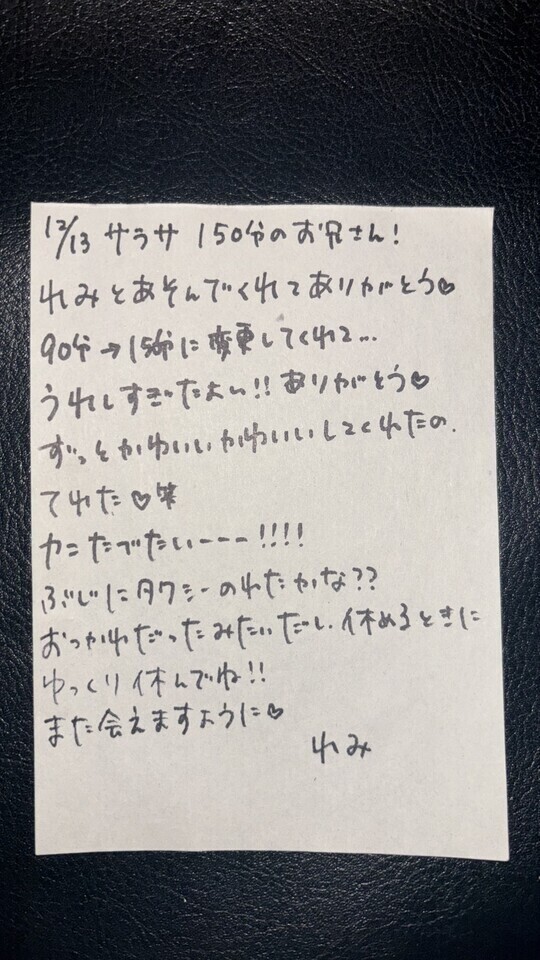 12/13 サラサ 150分のお兄さん!
れみとあそんでくれてありがとう♡
90分→150分に変更してくれて...
うれしすぎたよい!!ありがとう♡
ずっとかわいいかわいいしてくれたの.
てれた♡笑
カニたべたいーーー!!!!
ぶじにタクシーのれたかな??
おつかれだったみたいだし、休めるときに
ゆっくり休んでね!!
また会えますように♡
れみ